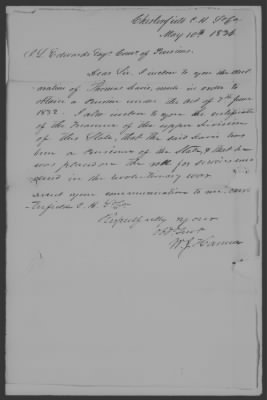 Chesterfield C H So Ca
May 10th 1836
J L Edwards Esqr Comr of Pensions
Dear Sir I inclose to you the decl
aration of Thomas Davis made in order to
obtain a Pension under the Act of 7th June
1832 I also inclose to you the certificate
of the Treasurer of the upper division
of this State, that the said Davis has
been a Pensioner of the State, & that he
was placed on the roll for services rend
ered in the revolutionary war
direct your communication to me Ches
terfield C. H. So Ca
Respectfully yours
Obt Servt
W. J. Hanna